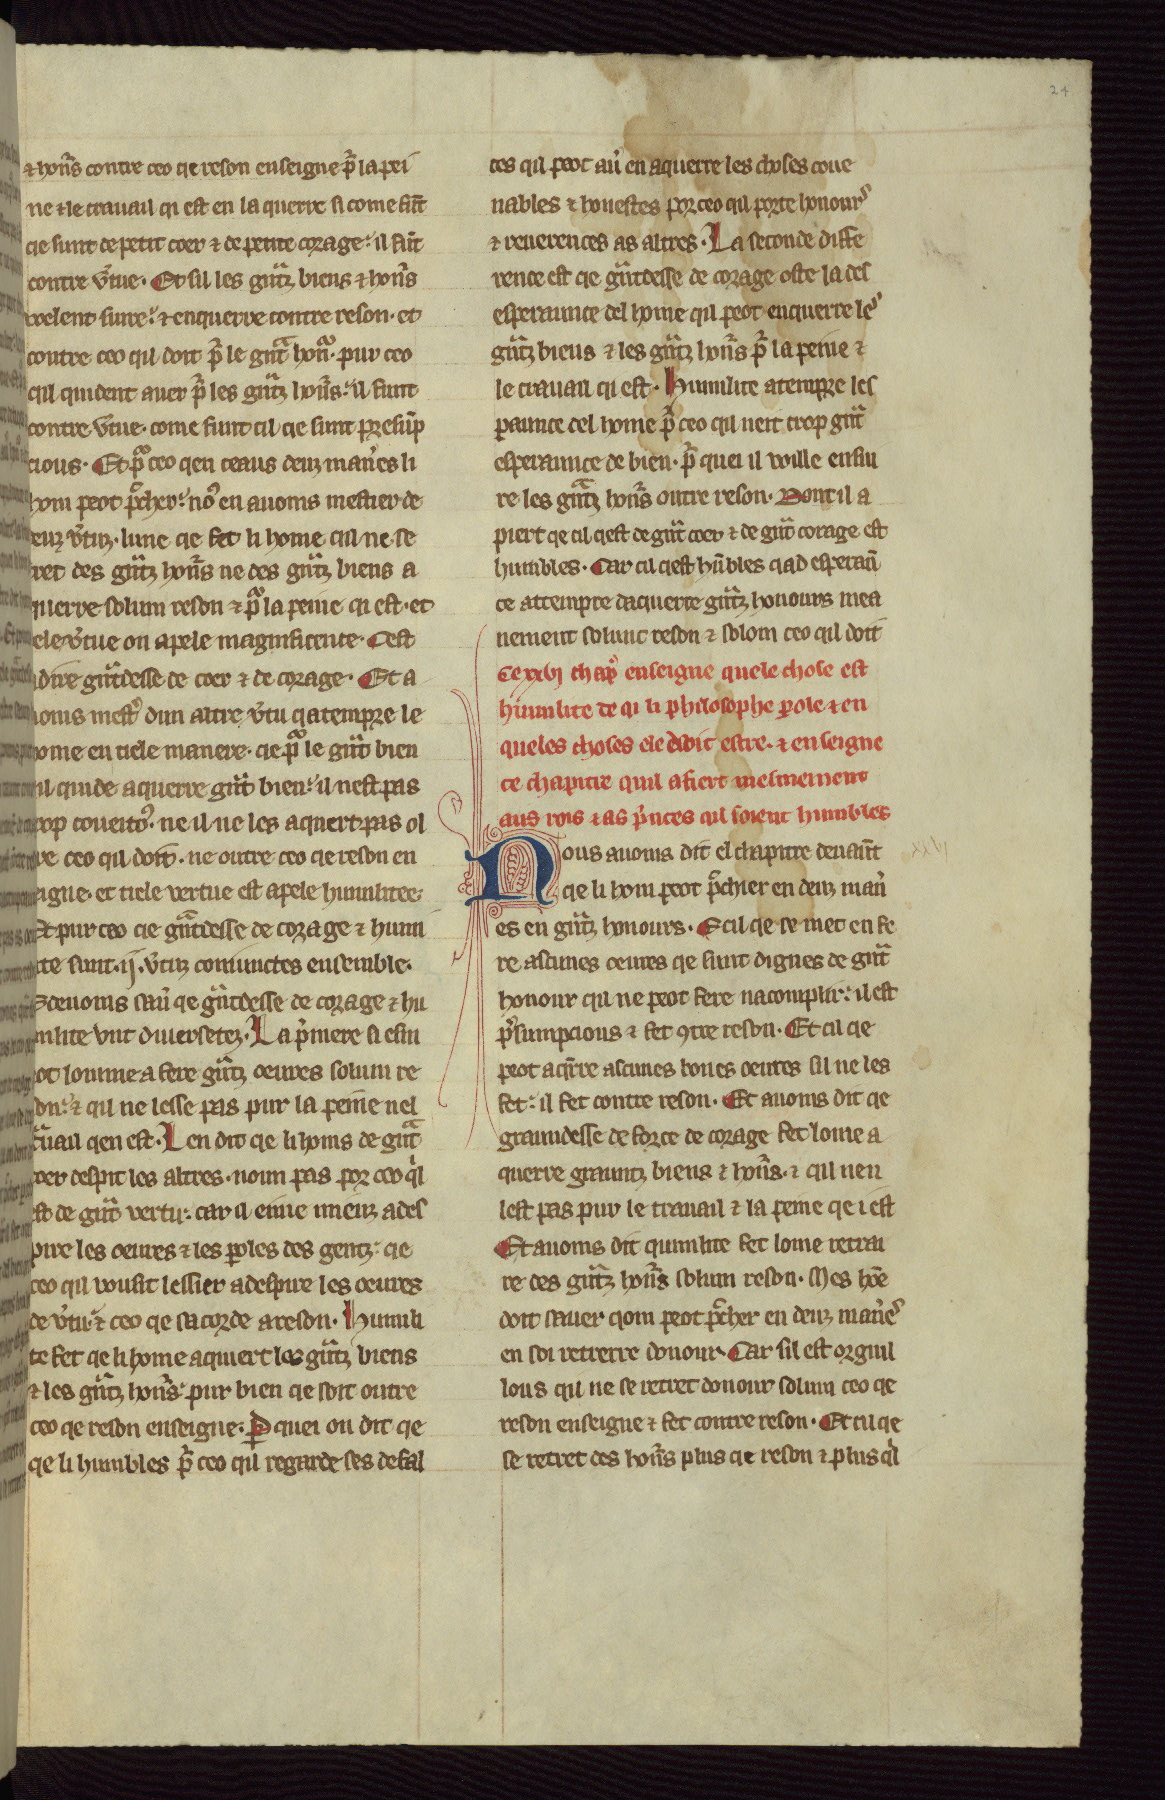 24
⁊ hon̄s contre ceo qe reson enseigne p̄ la pei
ne ⁊ le trauail qi est en la querre si come sūt
cie sunt de petit coer ⁊ de petite corage: il sūt
contre v̄tue. Et sil les gn̄tz biens ⁊ hon̄s
voelent suire: ⁊ enquerre contre reson. et
contre ceo qil doit p̄ le gn̄t hon̄. pur ceo
qil quident auer p̄ les gn̄tz hon̄s: il sunt
contre v̄tue. come sunt cil qe sunt presūp
cious. Et p̄ ceo qen ceaus deuz man̄es li
hom peot pecher: no᷒ en auoms mestier de
deuz v̄tuz. lune qe fet li home qil ne se
tret des gn̄tz hon̄s ne des gn̄tz biens a
querre solum reson ⁊ p̄ la peine qi est. et
cele v̄tue on apele magnificence. Cest
a dire gn̄tdesse de coer ⁊ de corage. Et a
uoms mest᷒ dun altre v̄tu qatempre le
home en tiele manere. qe p̄ le gn̄t bien
qil quide aquerre gn̄t bien: il nest pas
trop coueito᷒. ne il ne les aquert pas ol
tre ceo qil doit. ne outre ceo qe reson en
seigne. et tiele vertue est apele humilitee.
Et pur ceo qe gn̄tdesse de corage ⁊ humi
lite sunt .ij. v̄tuz coniunctes ensemble.
Deuoms sau᷒ qe gn̄tdesse de corage ⁊ hu
milite unt diuersetez. La p̄mere si esm
ot lomme a fere gn̄tz oeures solum re
son: ⁊ qil ne lesse pas pur la peine nel
t̄uail qen est. Len dit qe li homs de gn̄t
coer despit les altres. noun pas por ceo q̄l
est de gn̄t vertu: car il eime mieuz a des
pire les oeures ⁊ les ꝑoles des gentz: qe
ceo qil vousit lessier a despire les oeures
de v̄tu ⁊ ceo qe sacorde a reson. Humili
te fet qe li home aquiert les gn̄tz biens
⁊ les gn̄tz hon̄s: pur bien qe soit outre
ceo qe reson enseigne. Ꝑ quei on dit qe
qe li humbles p̄ ceo qil regarde ses defal
tes qil peot au᷒ en aquerre les choses coue
nables ⁊ honestes por ceo qil porte honour᷒
⁊ reuerences as altres. La seconde diffe
rence est qe gn̄tdesse de corage oste la des
esperaunce del home qil peot enquerre le᷒
gn̄tz biens ⁊ les gn̄tz hon̄s p̄ la peine ⁊
le trauail qi est. Humilite atempre les
paunce del home p̄ ceo qil neit trop gn̄t
esperaunce de bien. p̄ quei il voille ensui
re les gn̄tz hon̄s outre reson. Dont il a
piert qe cil qest de gn̄t coer ⁊ de gn̄t corage est
humbles. Car cil qest hūbles qad esperan̄
ce attempre daquerre gn̄tz honours mea
nement solunt reson ⁊ solom ceo qil doit
Ce xxvj chap᷒ enseigne quele chose est
humilite de qi li philosophe ꝑole ⁊ en
queles choses ele doit estre. ⁊ enseigne
ce chapitre quil afiert meismement
aus rois ⁊ as p̄nces qil soient humbles
Nous auoms dit el chapitre deuaūt
qe li hom peot pechier en deuz man̄
es en gn̄tz honours. E cil qe se met en fe
re ascunes oeures qe sunt dignes de gn̄t
honour qil ne peot fere nacomplir: il est
p̄sumpcious ⁊ fet 9tre reson. Et cil qe
peot aq̄rre ascunes bones oeures sil ne les
fet: il fet contre reson. Et auoms dit qe
graundesse de force de corage fet lome a
querre grauntz biens ⁊ hon̄s. ⁊ qil nen
lest pas pur le trauail ⁊ la peine qe i est
Et auoms dit qumilite fet lome retrai
re des gn̄tz hon̄s solum reson. Mes hōe
doit sauer qom peot pecher en deuz man̄e᷒
en soi retrerre donour. Car sil est orguil
lous qil ne se retret donour solum ceo qe
reson enseigne ⁊ fet contre reson. Et cil qe
se retret des hon̄s plus qe reson ⁊ plus q̄l
xxvj